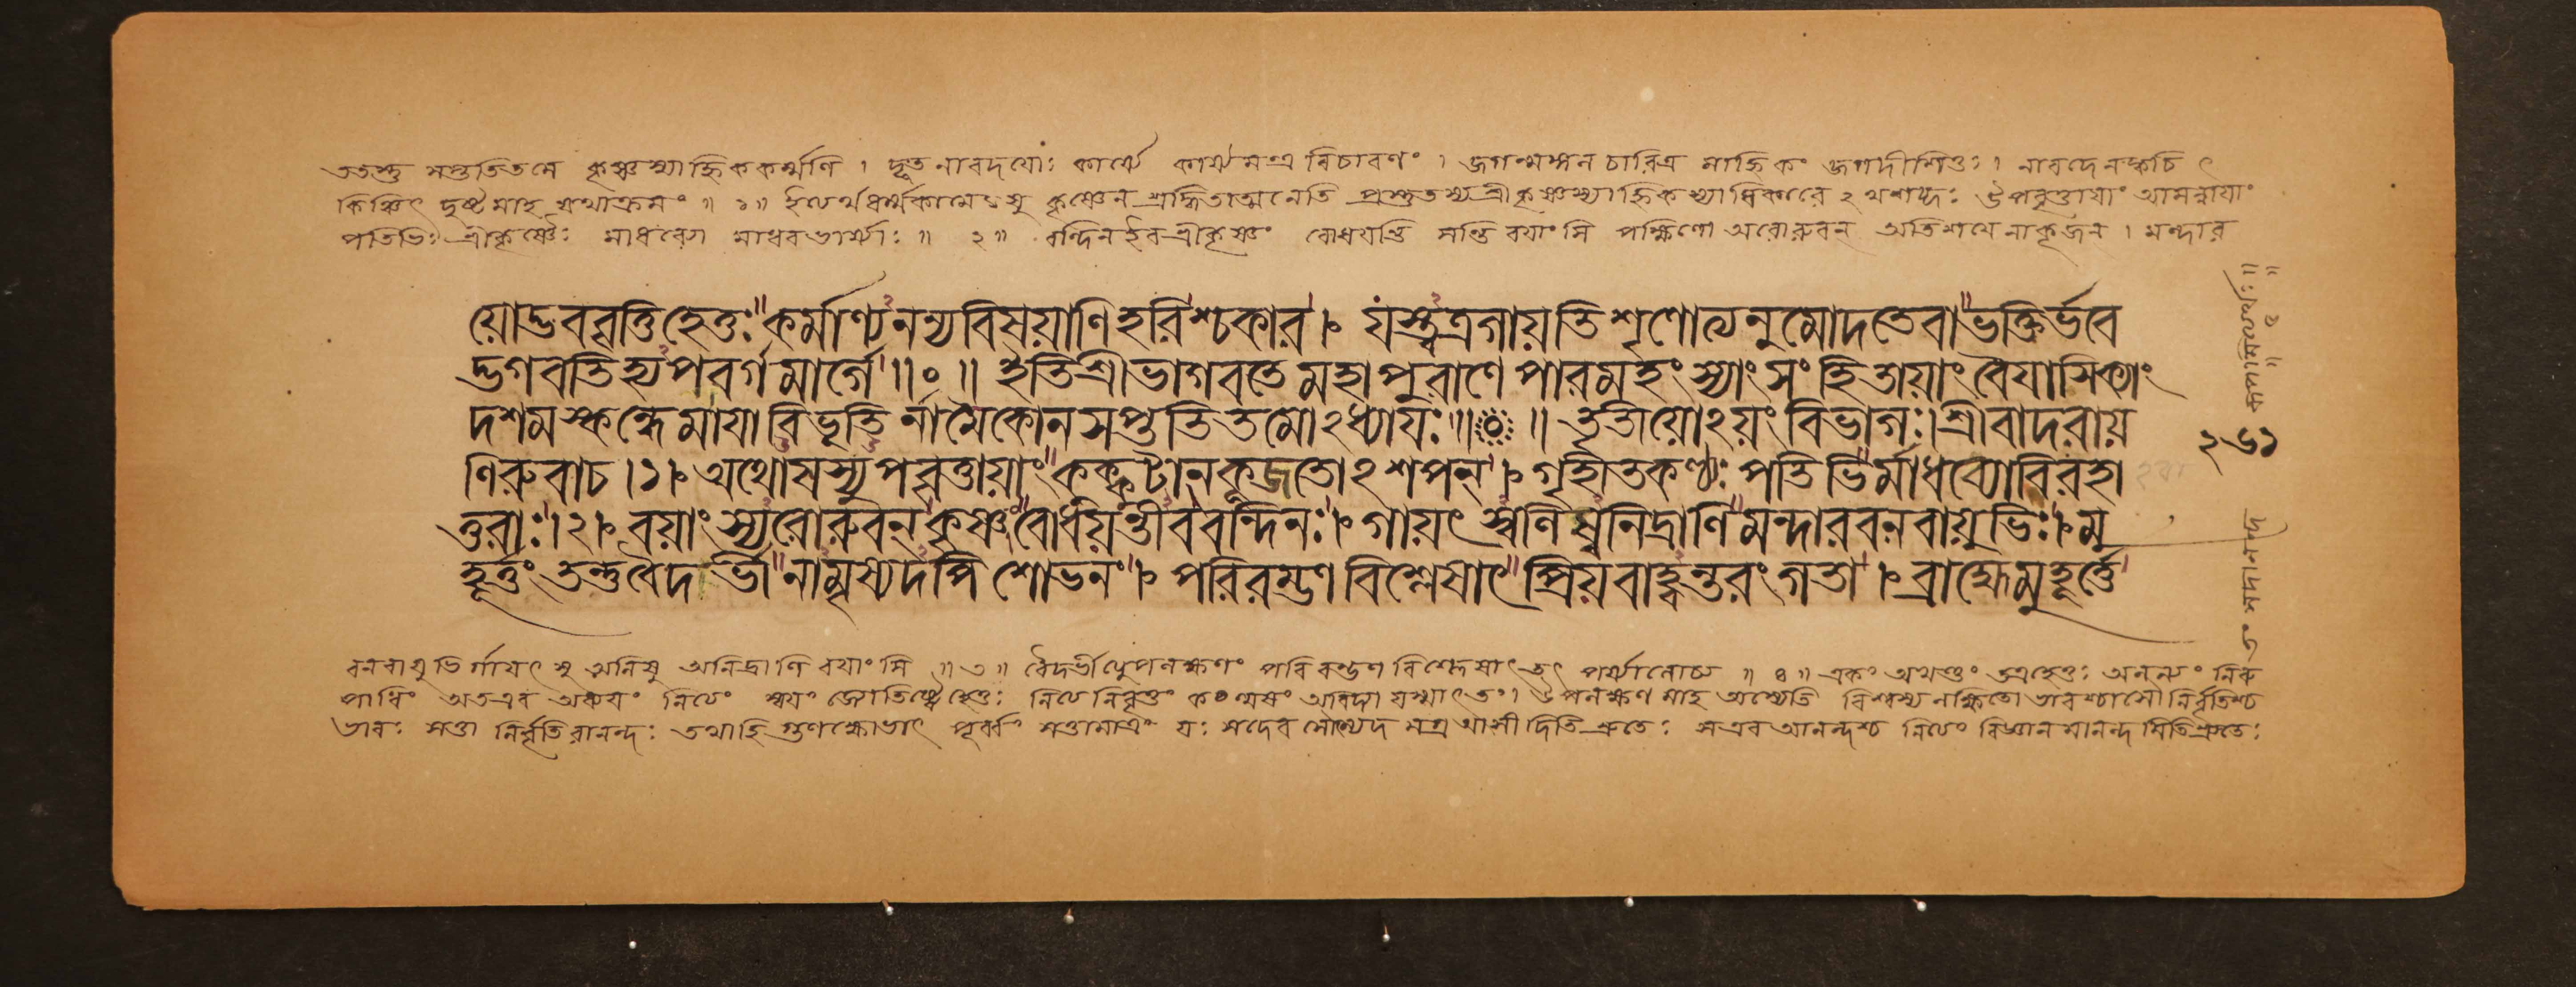 ততস্তু সপ্ততিতমে কৃষ্ণস্যাহ্নিককর্ম্মণি । দূত নারদয়োঃ কার্য্যে কার্য্যমন্ত্র বিচারণং । জগন্মঙ্গল চারিত্র মাহ্নিকং জগদীশিতুঃ । নারদেন
কিঞ্চিৎ দৃষ্টমাহ যথাক্রমং ॥ ১॥ শ্রীকৃষ্ণস্যাহ্নিকস্যাধিকারে ২থশব্দঃ উপবৃত্তায়াং আসন্নায়াং
পতিভিঃ শ্রীকৃষ্ণৈঃ মাধব্যো মাধবভার্য্যাঃ ॥ ২॥ বন্দিন ইব শ্রীকৃষ্ণং বোধয়ন্তি সন্তি বয়াংসি পক্ষিণো অরোরুবন্ অতিশয়েনাকূজন্ । মন্দার
য়োদ্ভববৃত্তিহেতুঃ কর্মাণ্যনন্যবিষয়াণিহরিশ্চকার । যংস্ত্বত্রগায়তিশৃণোত্যনুমোদতেবাভক্তির্ভবে
দ্ভগবতিহ্যপবর্গমার্গে ॥০॥ ইতিশ্রীভাগবতে মহাপুরাণে পারমহংস্যাং সংহিতায়াং বৈয়াসিক্যাং
দশমস্কন্ধে মায়াবিভূতি র্নামৈকোনসপ্ততিতমো২ধ্যায়ঃ ॥০॥ তৃতীয়ো২য়ং বিভাগঃ । শ্রীবাদরায়
ণিরুবাচ ।১। অথোষস্যুপবৃত্তায়াং কুক্কুটানকূজতো২শপন্ । গৃহীতকণ্ঠ্যঃ পতিভির্মাধব্যোবিরহা
তুরাঃ ।২। বয়াংস্যরোরুবন্ কৃষ্ণংবোধয়ন্তীববন্দিনঃ । গায়ৎস্বলিষ্বনিদ্রাণিমন্দারবনবায়ুভিঃ । মু
হূর্ত্তং তন্তুবৈদর্ভীনামৃষ্যেদপিশোভনং । পরিরম্ভণবিশ্লেষাৎপ্রিয়বাহ্বন্তরংগতা । ব্রাহ্মেমুহূর্ত্তে
২৬১
বনবায়ুভি র্গায়ৎসু অলিষু অনিদ্রাণি বয়াংসি ॥ ৩॥ বৈদর্ভীত্যুপলক্ষণং পরিরম্ভণবিশ্লেষাৎ তৎ পর্য্যালোচ্য ॥ ৪॥ একং অখণ্ডং তত্রহেতুঃ অনন্যং নিরু
পাধিং অতএব অব্যয়ং নিত্যং স্বয়ং জ্যোতিষ্ট্বেহেতুঃ নিত্যনিবৃত্তং কল্মষং অবিদ্যা যস্মাৎ তং । উপলক্ষণমাহ অস্যেতি বিশ্বস্য লক্ষিতো ভাবশ্চাসৌ নির্বৃতিশ্চ
ভাবঃ সত্তা নির্বৃতিরানন্দঃ তথাহি গুণক্ষোভাৎ পূর্ব্বং সত্তামাত্রং যঃ সদেব সৌম্যেদমগ্র আসীদিতিশ্রুতেঃ স এব আনন্দশ্চ নিত্যং বিজ্ঞানমানন্দমিতিশ্রুতেঃ